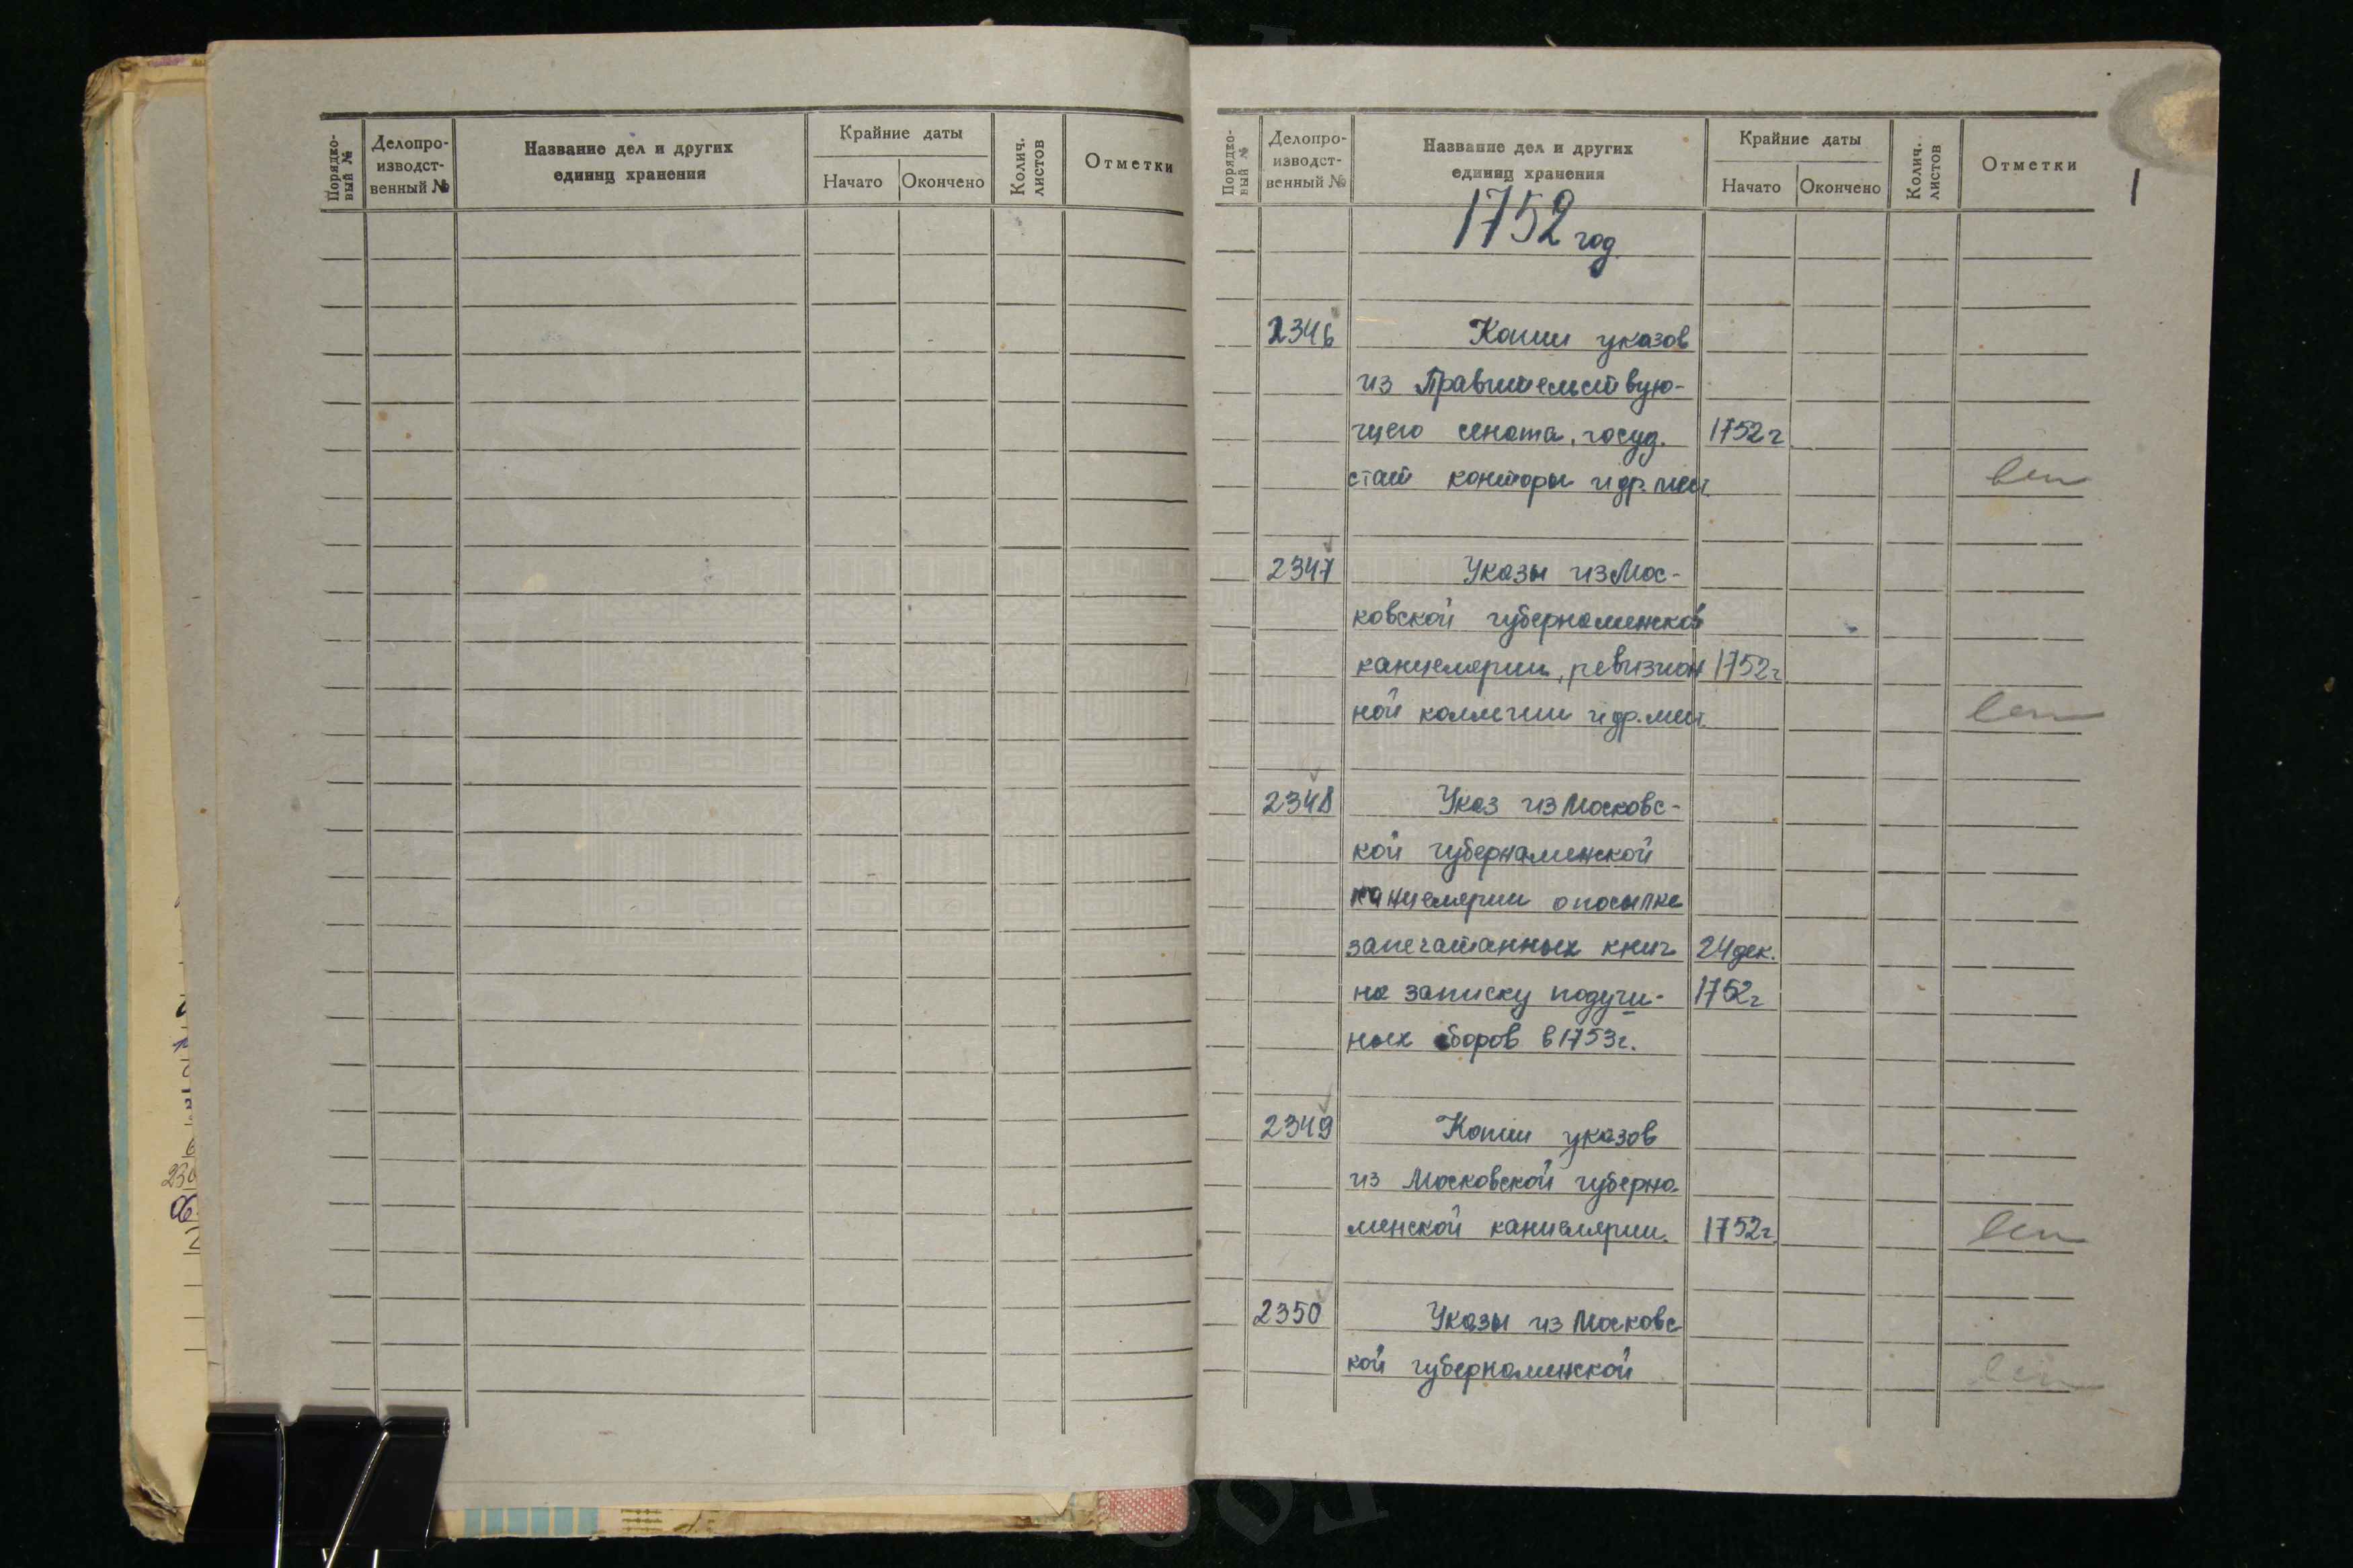 Порядко-
вый №
Делопро-
изводст-
венный №
Название дел и других
единиц хранения
Крайние даты
Начато
Окончено
Колич.
листов
Отметки
Порядко-
вый №
Делопро-
изводст-
венный №
Название дел и других
единиц хранения
Крайние даты
Начато
Окончено
Колич.
листов
Отметки
1
1752 год
2346 Копии указов
из Правительствую-
щего сената, госуд. 1752 г.
стат конторы и др. мест.
2347 Указы из Мос-
ковской губернаменской
канцелярии, ревизион 1752 г.
ной коллегии и др. мест.
2348 Указ из Московс-
кой губернаменской
канцелярии о посылке
запечатанных книг 24 дек.
на записку подуш- 1752 г
ных сборов в 1753 г.
2349 Копии указов
из Московской губерна-
менской канцелярии. 1752 г.
2350 Указы из Московс
кой губернаменской